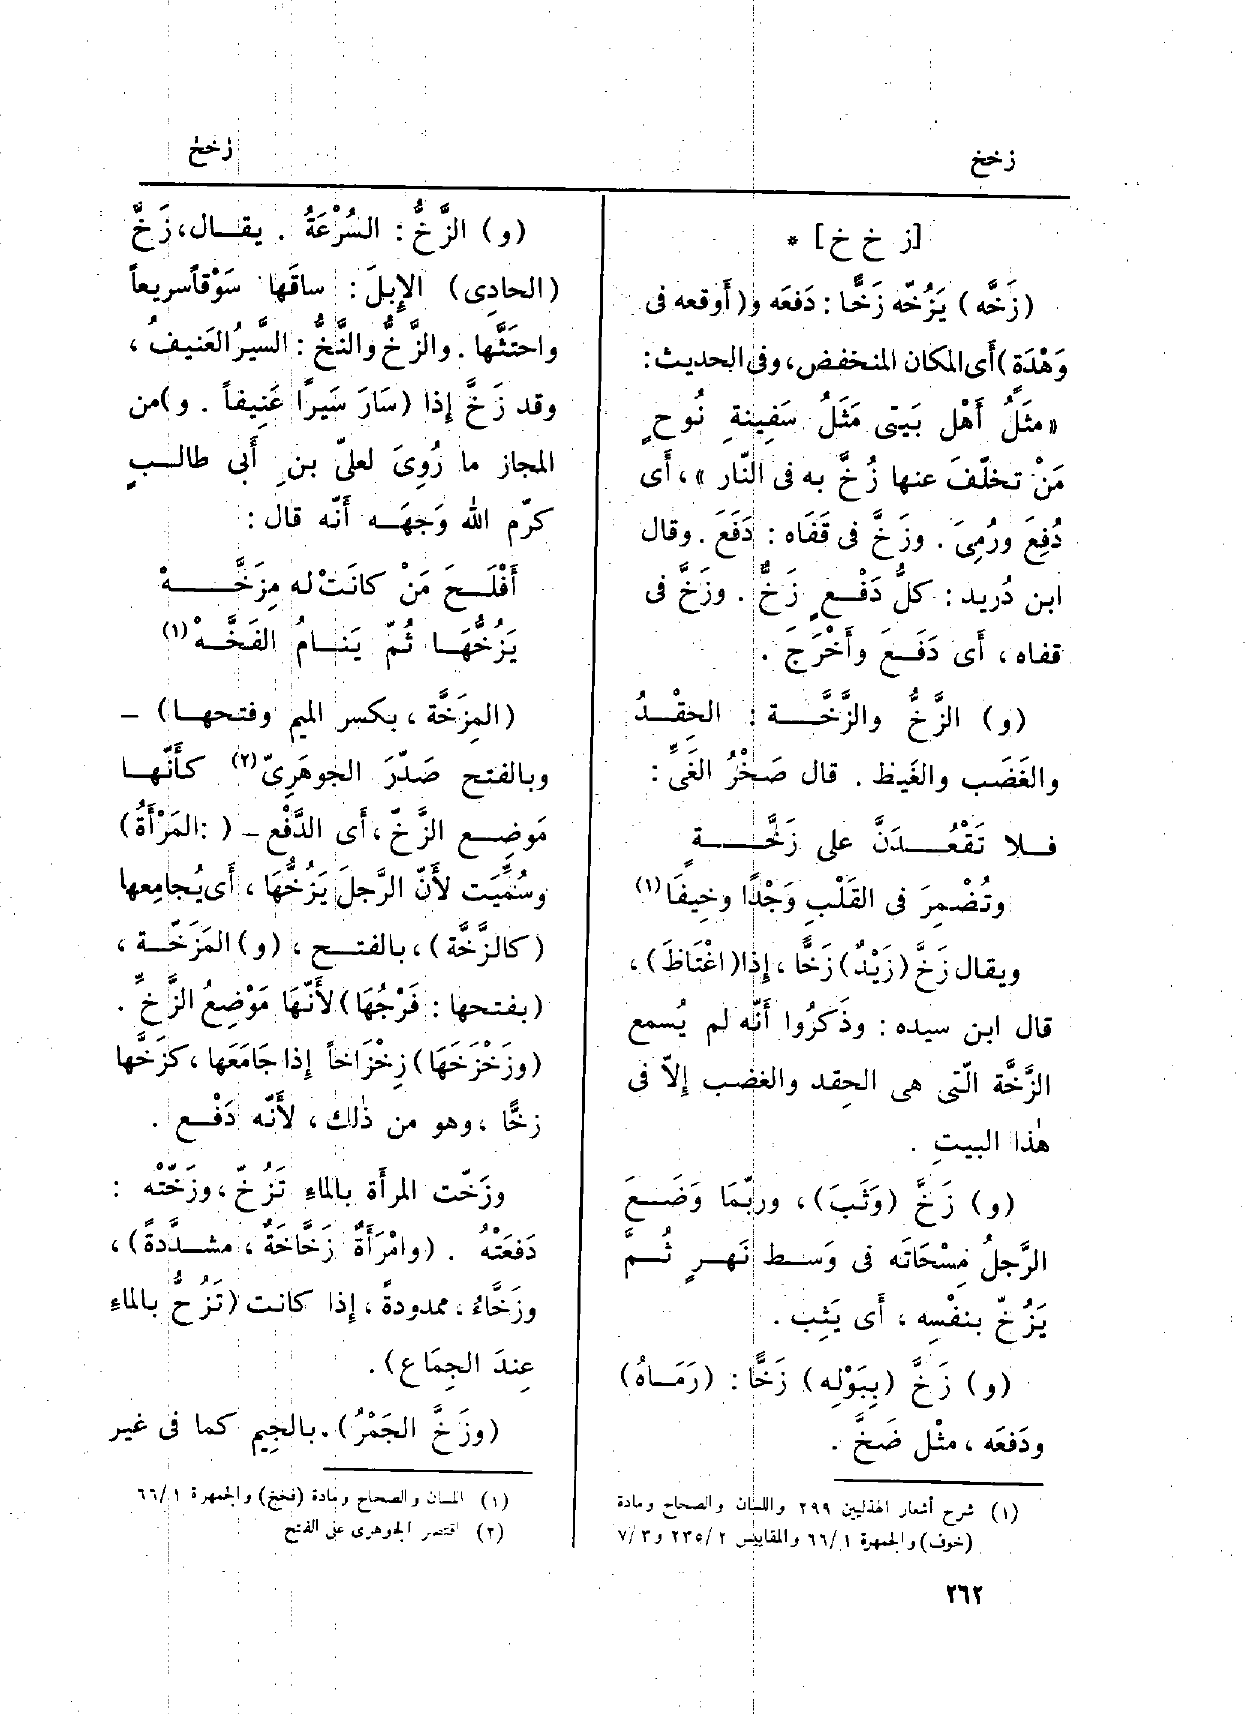 زخخ
زخخ
[ز خ خ] *
(زَخَّه) يَزُخّه زَخًّا : دَفعَه و(أَوقعه فى
وَهْدَة) أَى المكان المنخفض، وفى الحديث:
«مثَلُ أَهْل بَيتى مَثَلُ سَفِينةِ نُوحٍ
مَنْ تخلّفَ عنها زُخَّ به فى النّار »، أَى
دُفِعَ ورُمِىَ . وزَخَّ فى قَفَاه : دَفَعَ . وقال
ابن دُريد : كلُّ دَفْعٍ زَخٌّ . وزَخَّ فى
قفاه ، أَى دَفَعَ وأَخْرَجَ .
(و) الزَّخُّ والزَّخَّة : الحِقْدُ
والغَضَب والغَيظ . قال صَخْرُ الغَىِّ :
فلا تَقْعُدَنَّ على زَخَّةٍ
وتُضْمِرَ فى القَلْبِ وَجْدًا وخِيفَا (١)
ويقال زَخَّ (زَيْدٌ) زَخًّا ، إِذا (اغْتَاظَ) ،
قال ابن سيده : وذَكَرُوا أَنَّه لم يُسمع
الزَّخَّة الّتى هى الحِقد والغضب إِلاّ فى
هٰذا البيتِ .
(و) زَخَّ (وَثَبَ)، وربّمَا وَضَعَ
الرَّجلُ مِسْحَاتَه فى وَسط نَهرٍ ثُمَّ
يَزُخّ بنفْسِه ، أَى يَثِب .
(و) زَخَّ (بِبَوْلِه) زَخًّا : (رَمَاهُ)
ودَفعَه ، مثْل ضَخَّ .
(١) شرح أشعار الهذليين ٢٩٩ واللسان والصحاح ومادة
(خوف) والجمهرة ١ /٦٦ والمقاييس ٢ /٢٣٥ و ٣ /٧
(و) الزَّخُّ : السُرْعَةُ . يقال، زَخَّ
(الحادِى) الإِبلَ : ساقَها سَوْقاً سريعاً
واحتَثَّها . والزَّخُّ والنَّخُّ : السَّيرُ العَنيفُ ،
وقد زَخَّ إِذا (سَارَ سَيرًا عَنِيفاً . و) من
المجاز ما رُوِىَ لعلىّ بنِ أَبى طالبٍ
كرّم الله وَجهَه أَنّه قال :
أَفْلَحَ مَنْ كانَتْ له مِزَخَّهْ
يَزُخُّهَا ثُمّ يَنامُ الفَخَّهْ (١)
(المِزَخَّة ، بكسر الميم وفتحها) –
وبالفتح صَدّرَ الجوهَرِىّ (٢) كأَنّها
مَوضِع الزَّخّ ، أَى الدَّفْع – ( :المَرْأَةُ)
وسُمِّيَت لأَنّ الرَّجلَ يَزُخُّهَا ، أَى يُجامِعها
(كالزَّخَّة)، بالفتح ، (و) المَزَخَّة ،
(بفتحها : فَرْجُهَا) لأَنَّهَا مَوْضِعُ الزَّخِّ .
(وزَخْزَخَهَا) زِخْزَاخاً إِذا جَامَعَها ، كزَخَّها
زخًّا ، وهو من ذٰلك ، لأَنّه دَفْع .
وزَخّت المرأَة بالماءِ تَزُخّ ، وزَخّتْه :
دَفَعَتْهُ . (وامْرَأَةٌ زَخَّاخَةٌ ، مشدَّدةً) ،
وزَخَّاءُ ، ممدودةً ، إِذا كانت (تَزُخُّ بالماءِ
عِندَ الجِمَاع) .
(وزَخَّ الجَمْرُ). بالجِيم كما فى غير
(١) اللسان والصحاح ومادة (فخخ) والجمهرة ١ /٦٦
(٢) اقتصر الجوهرى على الفتح
٢٦٢